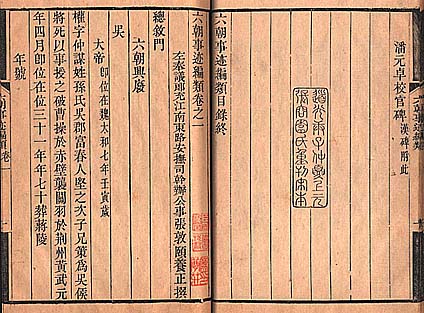 潘元卓校官碑 漢碑附此
道光庚子仲夏上元
六朝事迹編類目錄終
六朝事迹編類卷之一
左奉議郎充江南東路安撫司幹辦公事張敦頤養正撰
總敘門
六朝興廢
吳
大帝 即位在魏太和七年壬寅歲
權字仲謀姓孫氏吳郡富春人堅之次子兄策爲吳侯
將死以事授之破曹操於赤壁襲關羽於荆州黃武元
年四月即位在位三十一年年七十葬蔣陵
年號